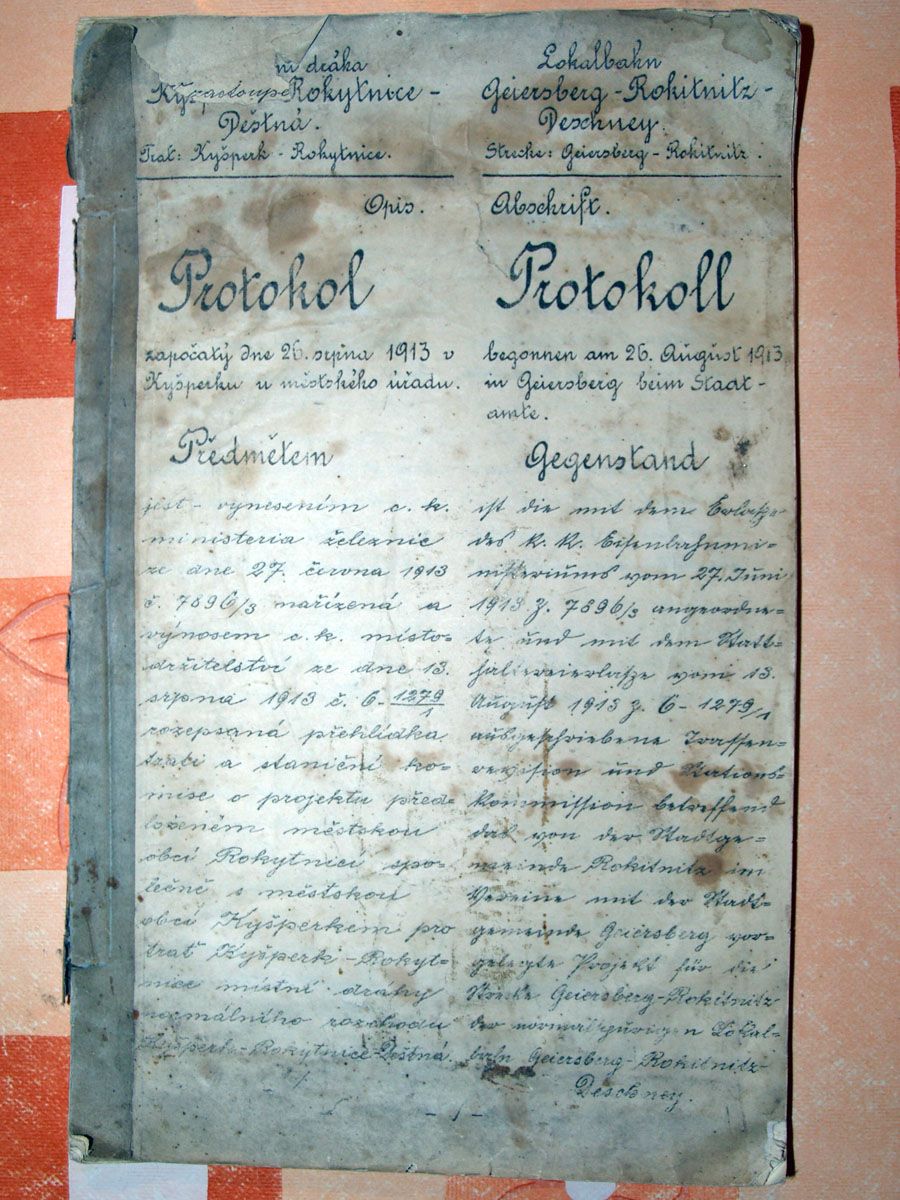 ní dráha
Kyšperk Rokytnice -
Deštná.
Trať: Kyšperk - Rokytnice.
Opis.
Protokol
započatý dne 26. srpna 1913 v
Kyšperku u městského úřadu.
Předmětem
jest - vynesením c. k.
ministeria železnic
ze dne 27. června 1913
č. 7896/3 nařízená a
výnosem c. k. místo-
držitelství ze dne 13.
srpna 1913 č. 6-1279/1
rozepsaná přehlídka
trati a staniční ko-
mise o projektu před-
loženém městskou
obcí Rokytnicí spo-
lečně s městskou
obcí Kyšperkem pro
trať Kyšperk - Rokyt-
nice místní dráhy
normálního rozchodu
Kyšperk-Rokytnice-Deštná
Lokalbahn
Geiersberg-Rokitnitz-
Deschney.
Strecke: Geiersberg-Rokitnitz.
Abschrift.
Protokoll
begonnen am 26. August 1913
in Geiersberg beim Stadt-
amte.
Gegenstand
ist die mit dem Erlasse
des k. k. Eisenbahnmi-
nisteriums vom 27. Juni
1913 Z. 7896/3 angeordne-
te und mit dem Statt-
haltereierlasse vom 13.
August 1913 Z. 6-1279/1
ausgeschriebene Trassen-
revision und Stations-
kommission betreffend
das von der Stadtge-
meinde Rokitnitz im
Vereine mit der Stadt-
gemeinde Geiersberg vor-
gelegte Projekt für die
Strecke Geiersberg-Rokitnitz
der normalspurigen Lokal-
bahn Geiersberg-Rokitnitz-
Deschney.